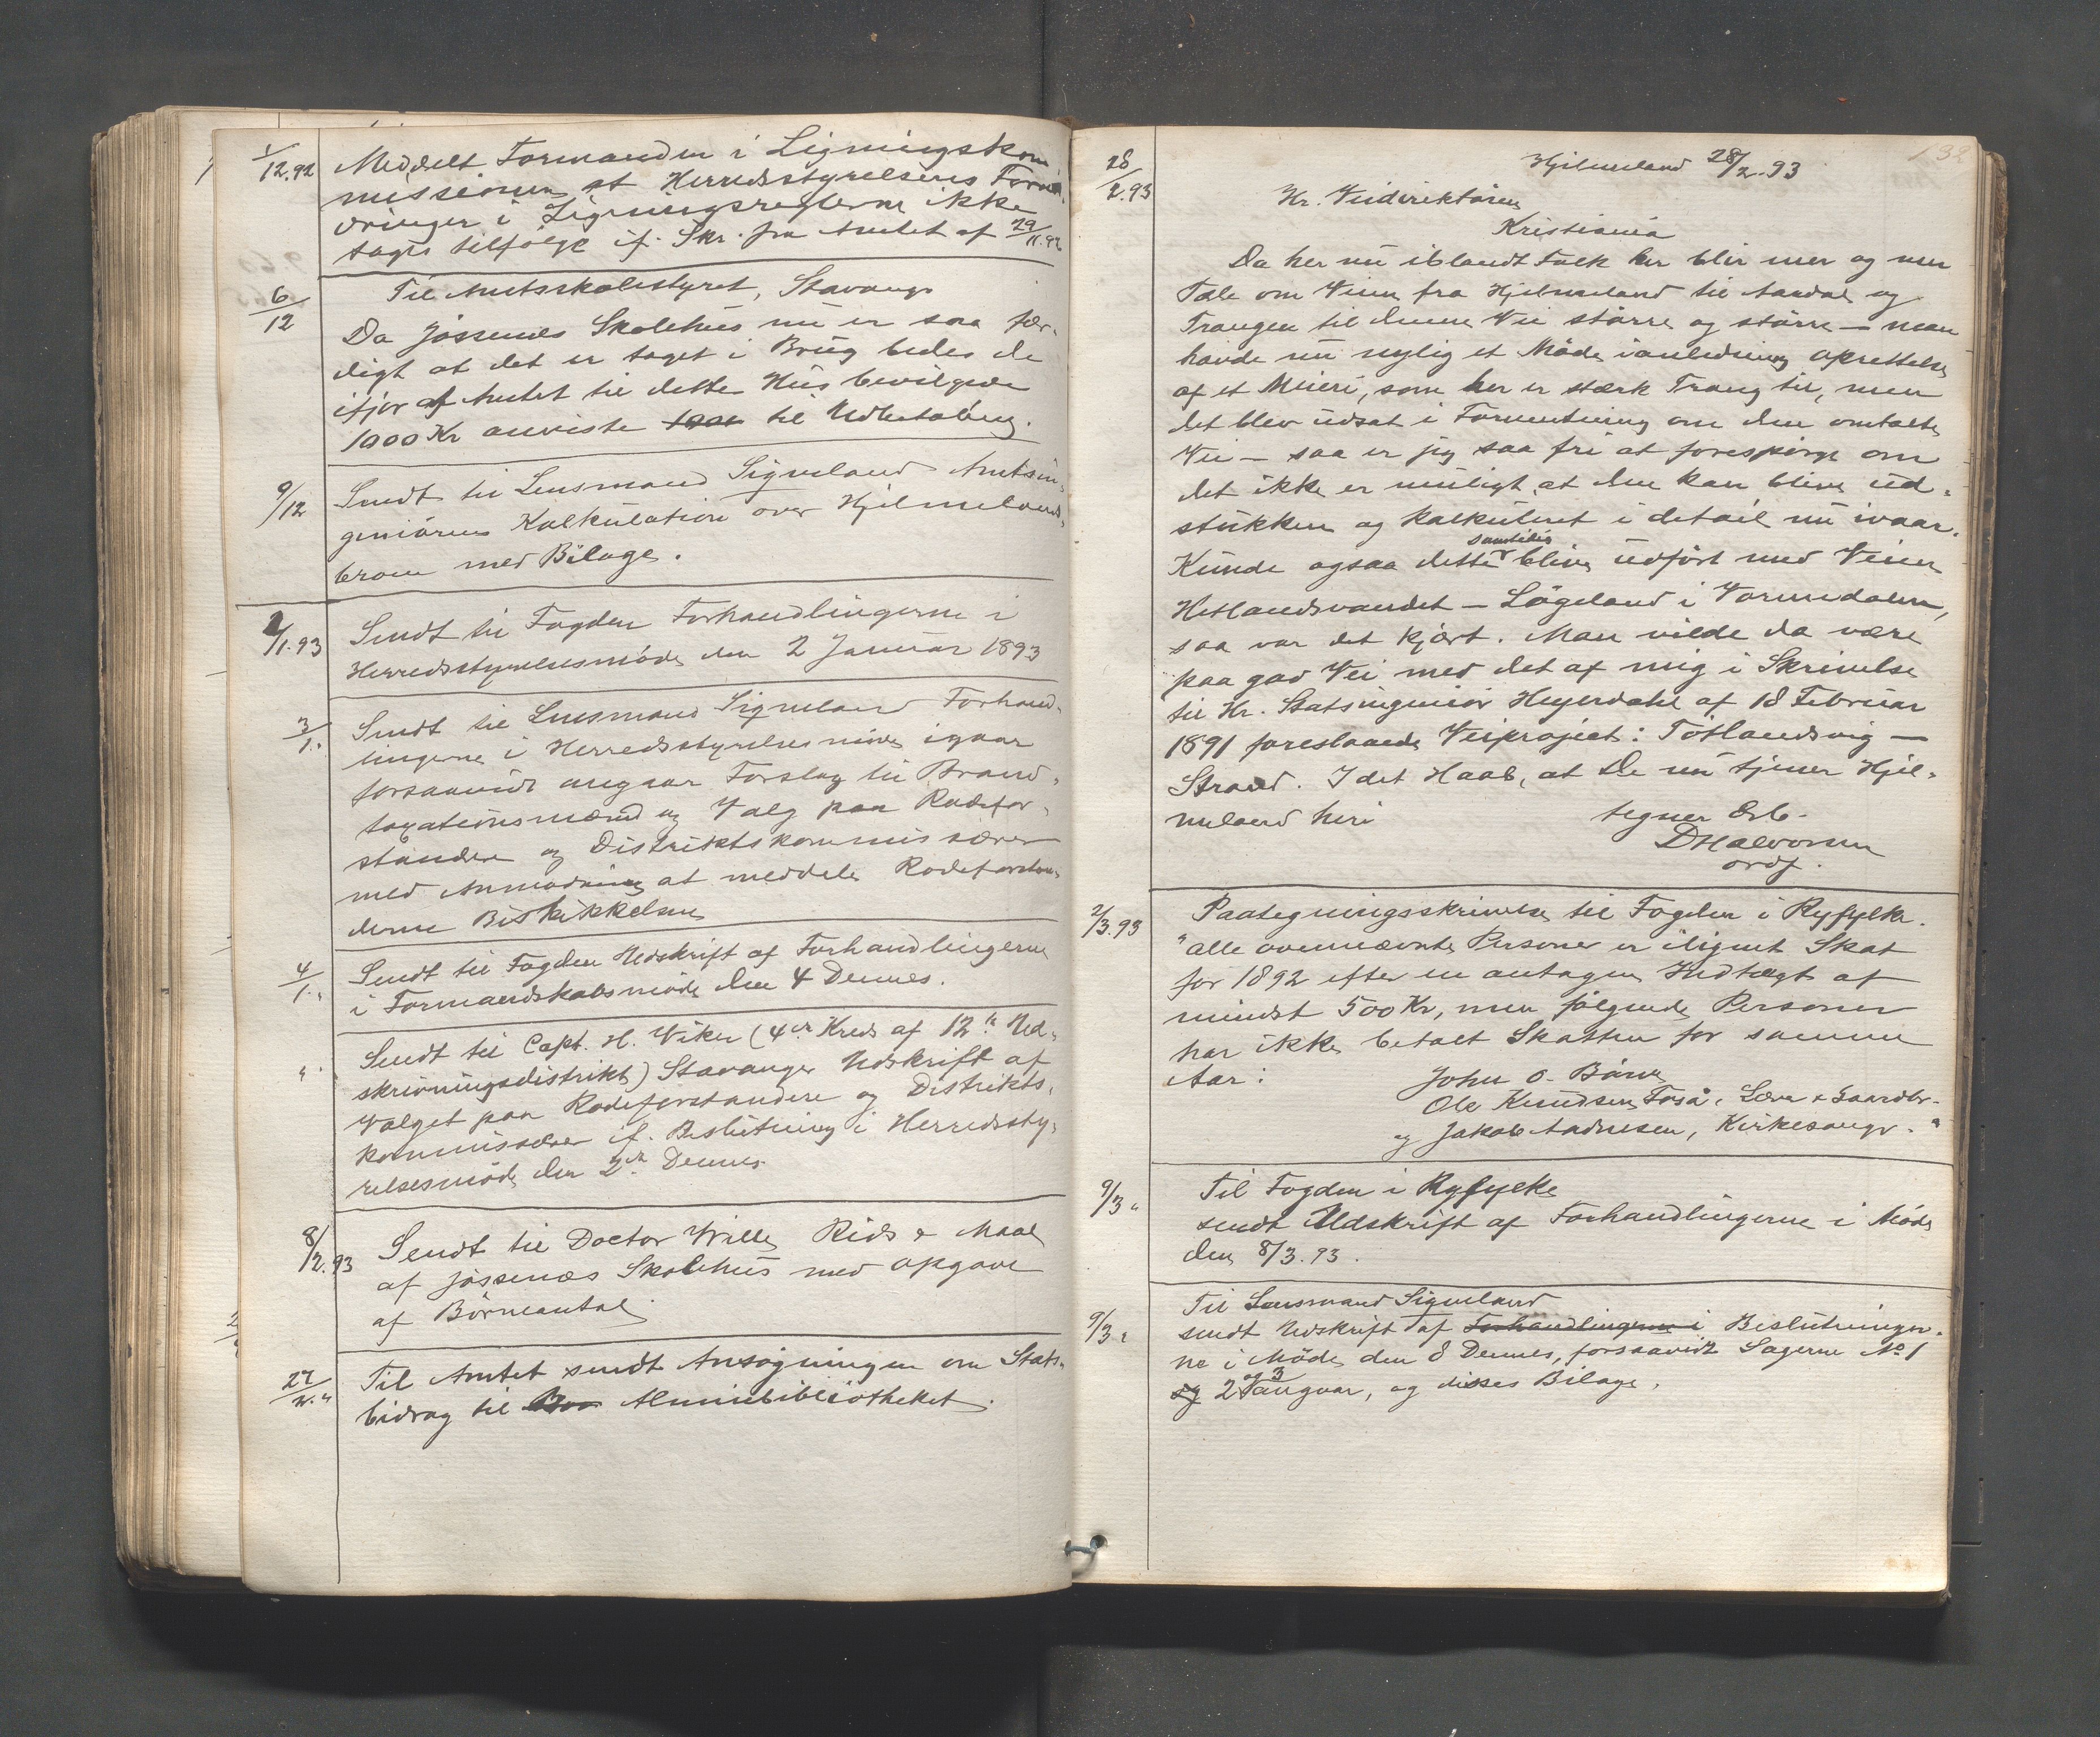 1/12.92 Meddelt Formanden i Ligningskom
missionen at Herredsstyrelsens Foran
dringer i Ligningsreglerne ikke
tages tilfølge if. Skr. fra Amtet af 29/11.92
6/12 Til Amtsskolestyret, Stavanger
Da Jøssenes Skolehus nu er saa fær-
digt at det er taget i Brug bedes de
ifjor af Amtet til dette Hus bevilgede
1000 Kr anviste til Udbetaling.
9/12 Sendt til Lensmand Sigmeland Amtsin-
geniørens Kalkulation over Hjelmelands-
broen med Bilage.
2/1.93 Sendt til Fogden Forhandlingerne i
Herredsstyrelsesmøde den 2 Januar 1893
3/1." Sendt til Lensmand Sigmeland Forhand-
lingerne i Herredsstyrelsesmøde igaar
forsaavidt angaar Forslag til Brand-
taxationsmænd og Valg paa Rodefor-
standere og Distriktskommissærer
med Anmodning at meddele Rodeforstan-
derne Beskikkelsen
4/1." Sendt til Fogden Udskrift af Forhandlingerne
i Formandskabsmøde den 4 Dennes.
" Sendt til Capt. H. Viker (4de Kreds af 12te Ud-
skrivningsdistrikt) Stavanger Udskrift af
Valget paa Rodeforstandere og Distrikts-
kommissærer if. Beslutning i Herredssty-
relsesmøde den 2den Dennes
8/2.93 Sendt til Doctor Wille Rids & Maal
af Jøssenæs Skolehus med Opgave
af Børneantal
27/2." Til Amtet sendt Ansøgningen om Stats-
bidrag til Almuebibliotheket.
132
28/2.93 Hjelmeland 28/2.93
Hr. Veidirektøren
Kristiania
Da her nu iblandt Folk her blir mer og mer
Tale om Veien fra Hjelmeland til Aardal og
Trangen til denne Vei større og større — man
havde nu nylig et Møde i anledning Oprettelse
af et Meieri, som her er stærk Trang til, men
det blev udsat i Forventning om den omtalte
Vei — saa er jeg saa fri at forespørge om
det ikke er muligt at den kan blive ud-
stukken og kalkuleret i detail nu ivaar.
samtidig
Kunde ogsaa dette blive udført med Veien
Hetlandsvandet — Løgeland i Vormedalen,
saa var det kjært. Man vilde da være
paa god Vei med det af mig i Skrivelse
til Hr. Statsingeniør Heyerdahl af 18 Februar
1891 foreslaaede Veiprojekt: Tøtlandsvig —
Strand. I det Haab, at De nu tjener Hjel-
meland heri tegner Erb.
D Halvorsen
ordf.
2/3.93 Paategningsskrivelse til Fogden i Ryfylke.
"alle ovennævnte Personer er ilignet Skat
for 1892 efter en antagen Indtægt af
mindst 500 Kr, men følgende Personer
har ikke betalt Skatten for samme
Aar: John O. Børve
Ole Knudsen Foså, Lærer & Gaardbr.
og Jakob Andresen, Kirkesanger."
9/3 " Til Fogden i Ryfylke
sendt Udskrift af Forhandlingerne i Møde
den 8/3.93.
9/3 " Til Lensmand Sigmeland
sendt Udskrift af Forhandlingerne i Beslutninger-
ne i Møde den 8 Dennes, forsaavidt Sagerne No 1
og 3
og 2 angaar, og disses Bilage.